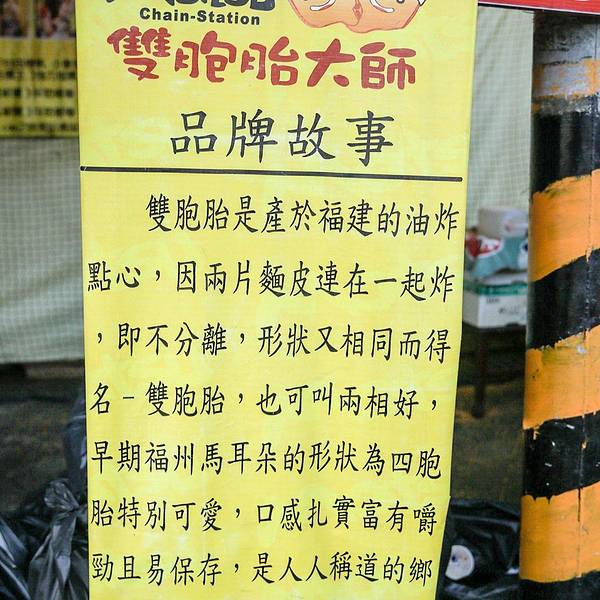 Chain-Station
雙胞胎大師
品牌故事
雙胞胎是產於福建的油炸
點心，因兩片麵皮連在一起炸
，即不分離，形狀又相同而得
名－雙胞胎，也可叫兩相好，
早期福州馬耳朵的形狀為四胞
胎特別可愛，口感扎實富有嚼
勁且易保存，是人人稱道的鄉